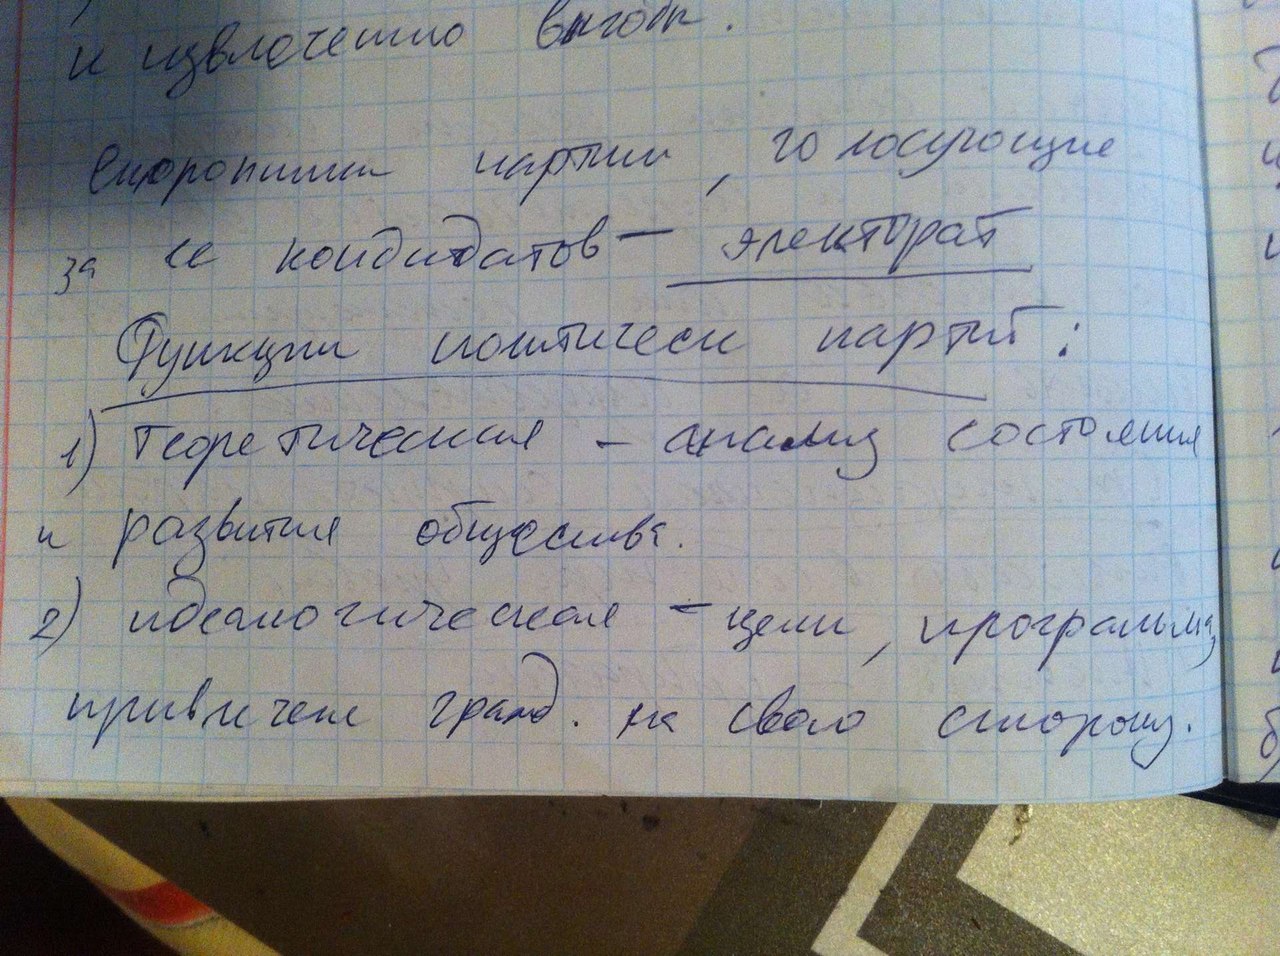 и извлечению выгоды.
Сторонники партии, голосующие
за ее кандидатов – электорат
Функции политическ партий:
1) Теоретическая – анализ состояния
и развития общества.
2) идеологическая – цели, программы,
привлечение гражд. на свою сторону.